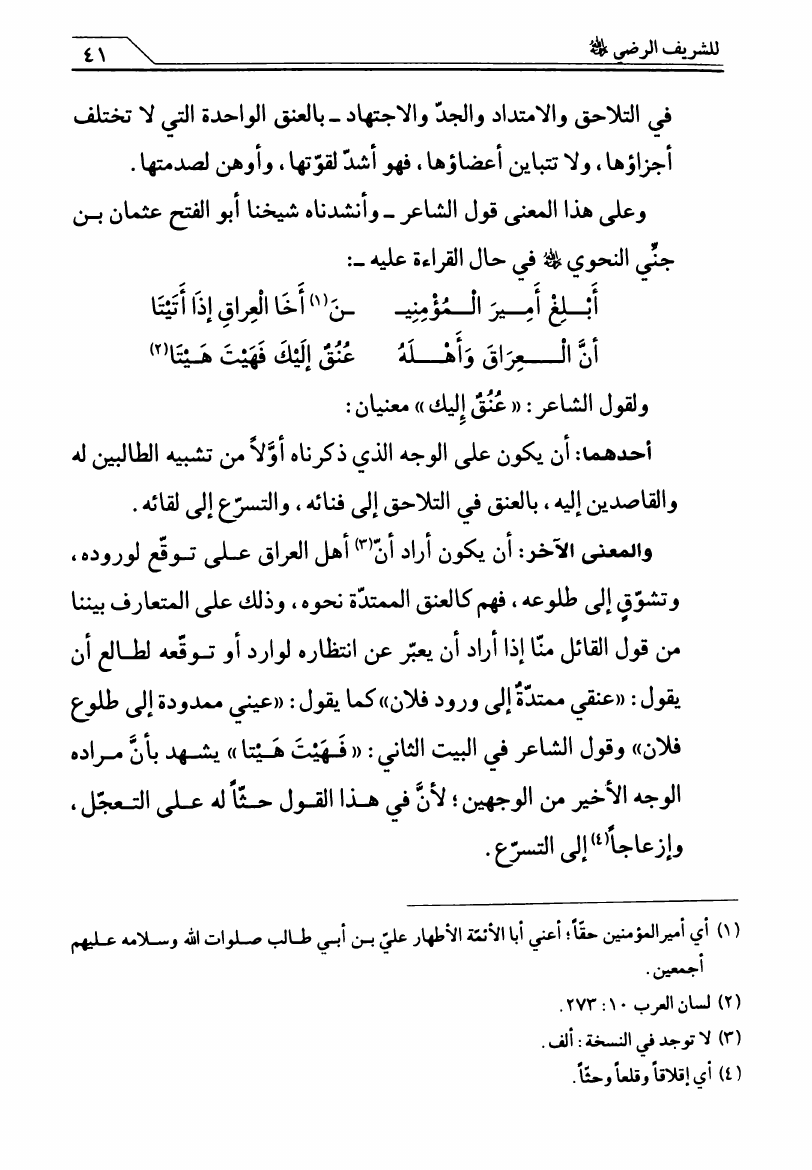 للشريف الرضي ﷺ
٤١
في التلاحق والامتداد والجدّ والاجتهاد ـ بالعنق الواحدة التي لا تختلف
أجزاؤها، ولا تتباين أعضاؤها، فهو أشدّ لقوّتها، وأوهن لصدمتها.
وعلى هذا المعنى قول الشاعر ـ وأنشدناه شيخنا أبو الفتح عثمان بـن
جنِّي النحوي في حال القراءة عليه ـ:
أَبْـلِغْ أَمِـيرَ الْـمُؤْمِنِيـ ـنَ(١) أَخَا الْعِراقِ إذَا أَتَيْتَا
أنَّ الْـعِرَاقَ وَأَهْـلَهُ عُنُقٌ إلَيْكَ فَهَيْتَ هَـيْتَا(٢)
ولقول الشاعر: «عُنُقٌ إِليك» معنيان:
أحدهما: أن يكون على الوجه الذي ذكرناه أوَّلاً من تشبيه الطالبين له
والقاصدين إليه، بالعنق في التلاحق إلى فنائه، والتسرّع إلى لقائه.
والمعنى الآخر: أن يكون أراد أنّ(٣) أهل العراق عـلى تـوقّع لوروده،
وتشوّقٍ إلى طلوعه، فهم كالعنق الممتدّة نحوه، وذلك على المتعارف بيننا
من قول القائل منّا إذا أراد أن يعبّر عن انتظاره لوارد أو تـوقّعه لطـالع أن
يقول: «عنقي ممتدّةٌ إلى ورود فلان» كما يقول: «عيني ممدودة إلى طلوع
فلان» وقول الشاعر في البيت الثاني: «فَـهَيْتَ هَـيْتا» يشـهد بأنَّ مـراده
الوجه الأخير من الوجهين؛ لأنَّ في هـذا القـول حـثّاً له عـلى التـعجّل،
وإزعاجاً(٤) إلى التسرّع.
(١) أي أميرالمؤمنين حقّاً؛ أعني أبا الأئمّة الأطهار عليّ بـن أبـي طـالب صـلوات الله وسـلامه عـليهم
أجمعين.
(٢) لسان العرب ١٠: ٢٧٣.
(٣) لا توجد في النسخة: ألف.
(٤) أي إقلاقاً وقلعاً وحثّاً.